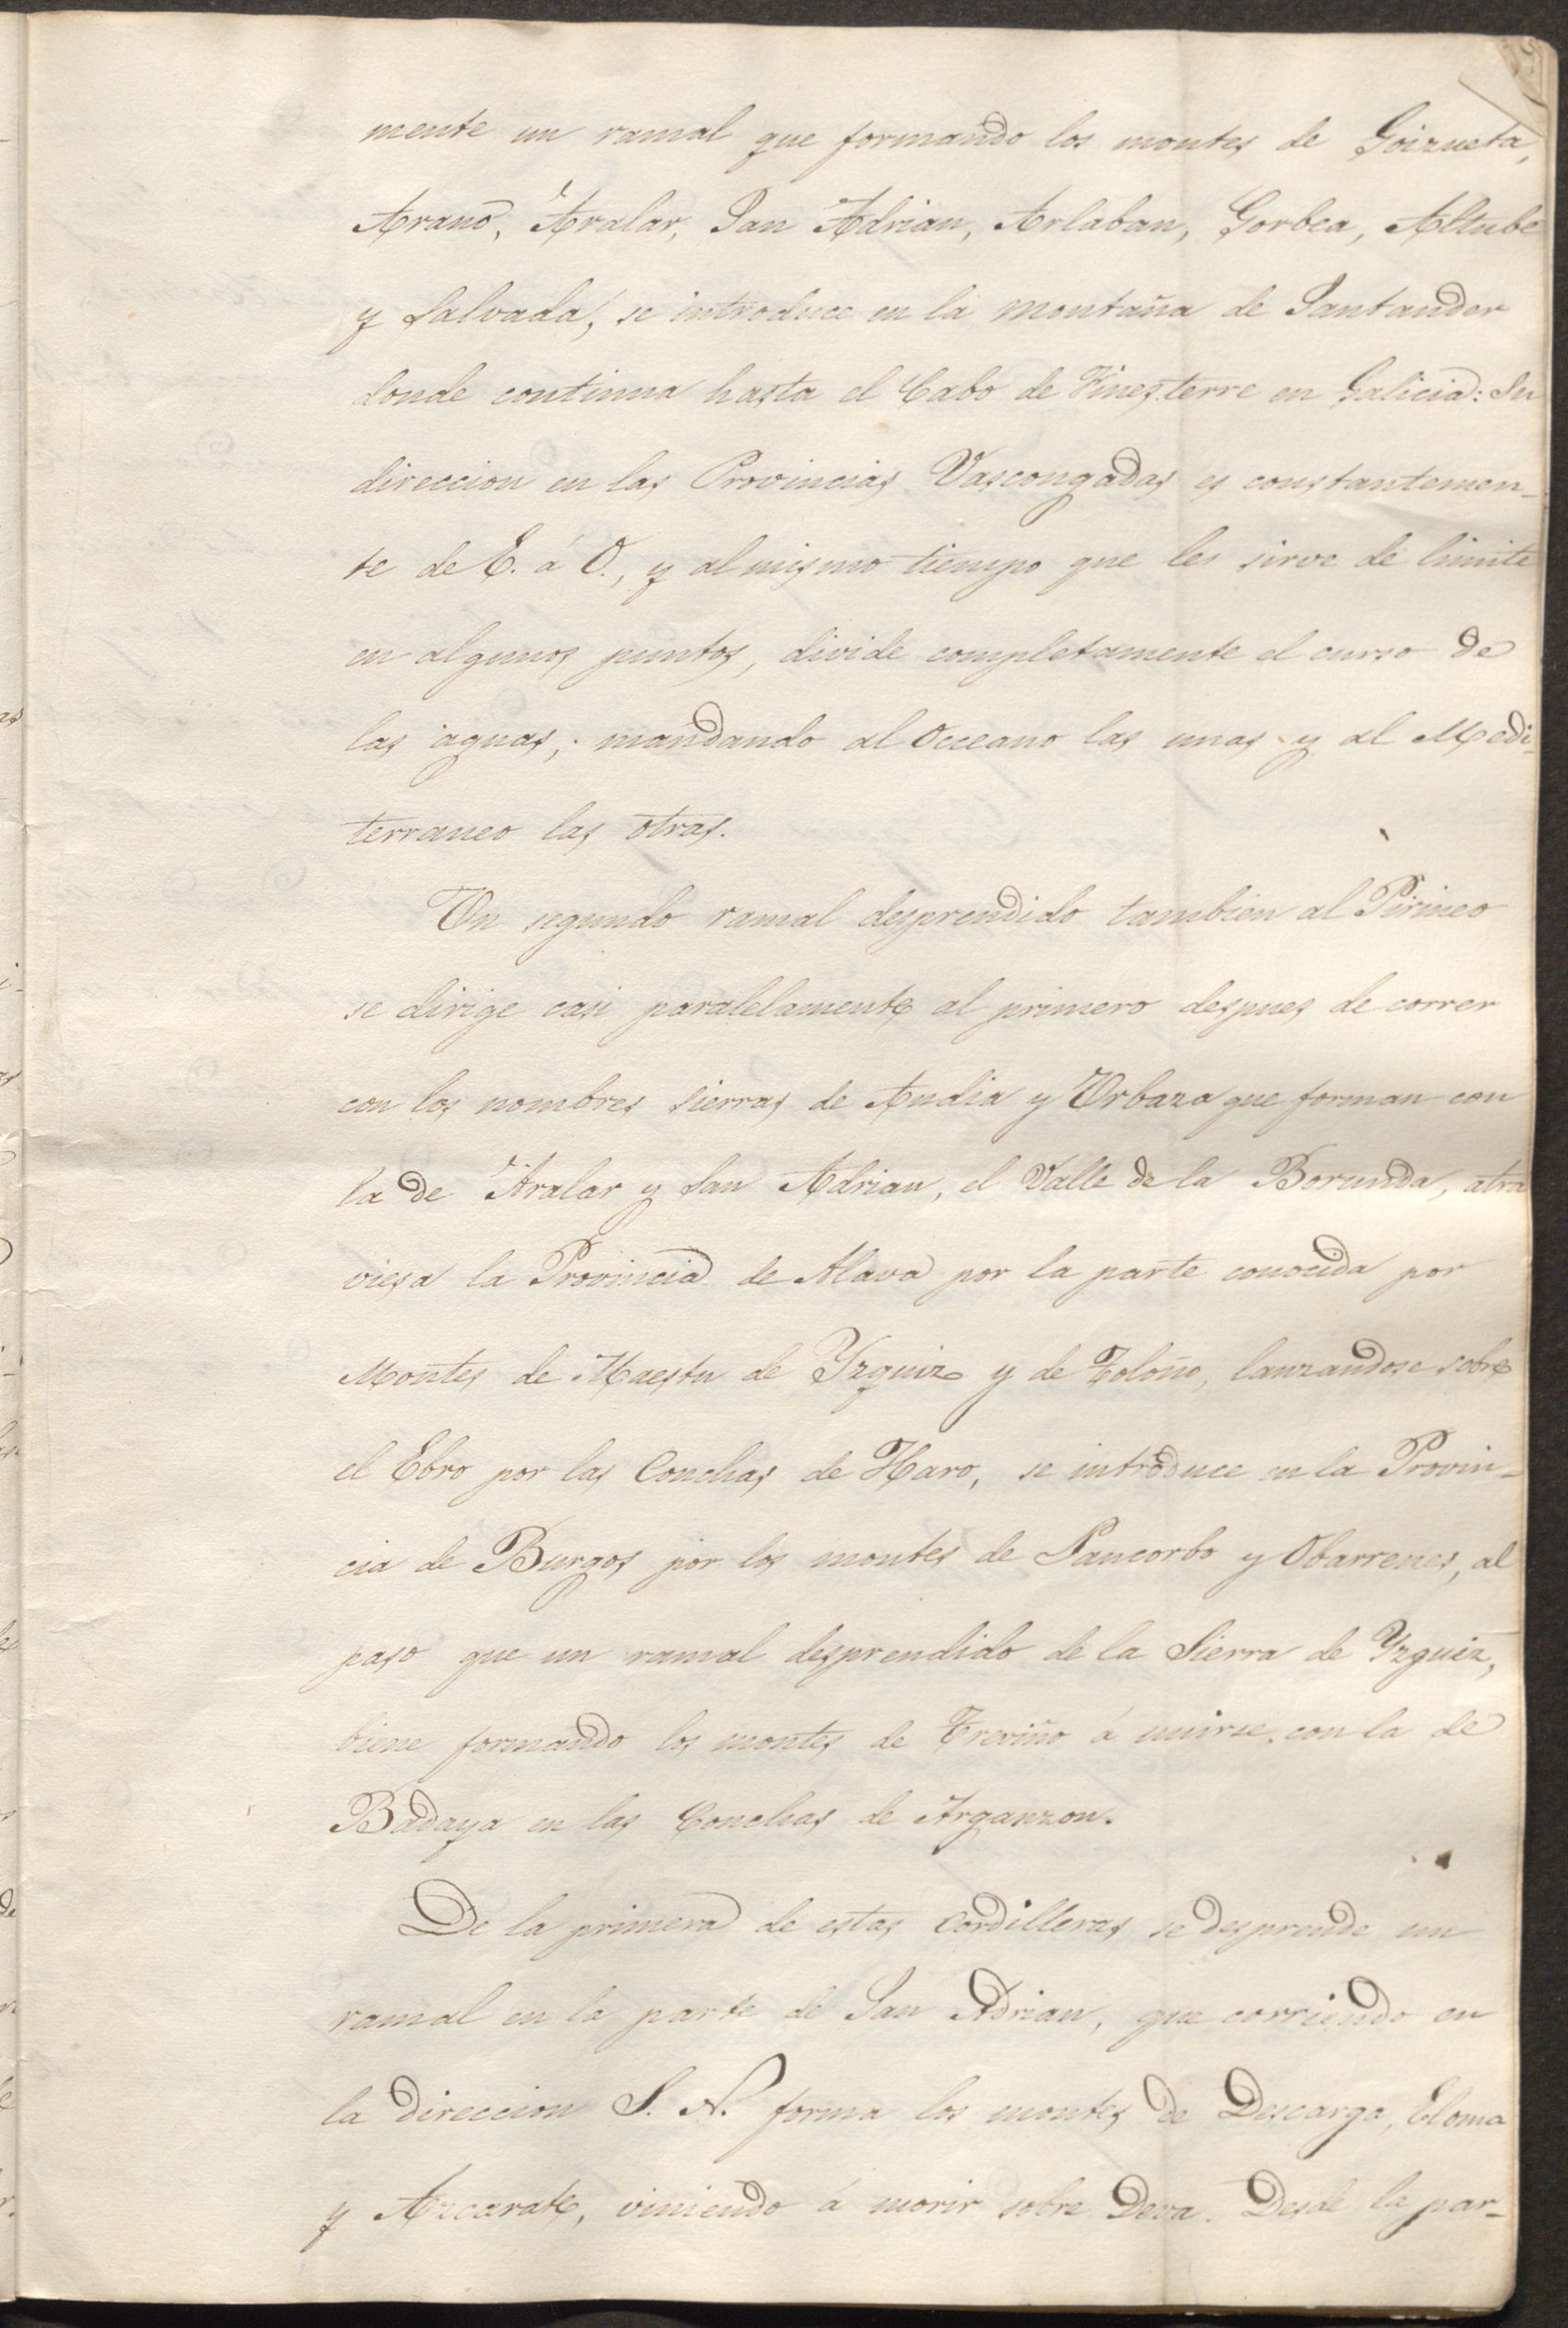 mente un ramal que formando los montes de Goizueta,
Arano, Aralar, San Adrian, Arlaban, Gorbea, Altube
y Salvada, se introduce en la montaña de Santander
donde continua hasta el Cabo de Finesterre en Galicia: Su
direccion en las Provincias Vascongadas es constantemen-
te de E. á O., y al mismo tiempo que les sirve de limite
en algunos puntos, divide completamente el curso de
las aguas, mandando al Occeano las unas y al Medi-
terraneo las otras.
Un segundo ramal desprendido tambien al Pirineo
se dirige casi paralelamente al primero despues de correr
con los nombres sierras de Andia y Urbaza que forman con
la de Aralar y San Adrian, el Valle de la Borunda, atra
viesa la Provincia de Alava por la parte conocida por
Montes de Maestu de Yzquiz y de Toloño, lanzandose sobre
el Ebro por las Conchas de Haro, se introduce en la Provin-
cia de Burgos por los montes de Pancorbo y Obarrenes, al
paso que un ramal desprendido de la Sierra de Yzquiz,
biene formando los montes de Treviño á unirse con la de
Badaya en las Conchas de Arganzon.
De la primera de estas Cordilleras se desprende un
ramal en la parte de San Adrian, que corriendo en
la direccion S. N. forma los montes de Descarga, Elosua
y Azcarate, viniendo á morir sobre Deva. Desde la par-